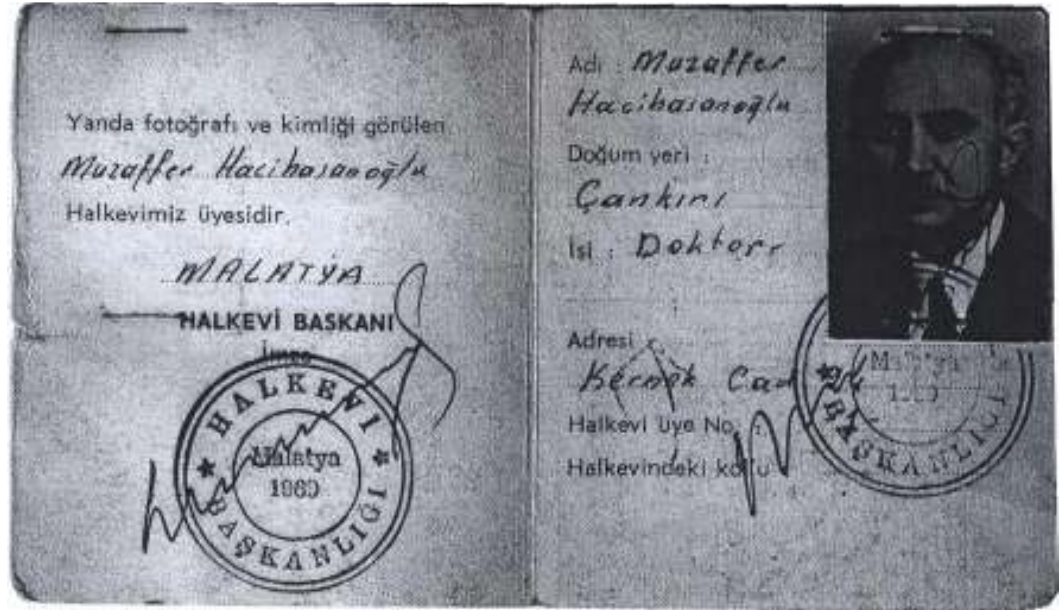 Yanda fotoğrafı ve kimliği görülen
Muzaffer Hacihasanoğlu
Halkevimiz üyesidir.
MALATYA
HALKEVİ BASKANI
İmza
HALKEVI
Malatya
1960
BAŞKANLIĞI
Adı : Muzaffer
Hacihasanoğlu
Doğum yeri :
Çankırı
İsi : Doktorr
Adresi :
Kernek Cad
Halkevi üye No. :
Halkevindeki kolu
Malatya
BAŞKANLIĞI